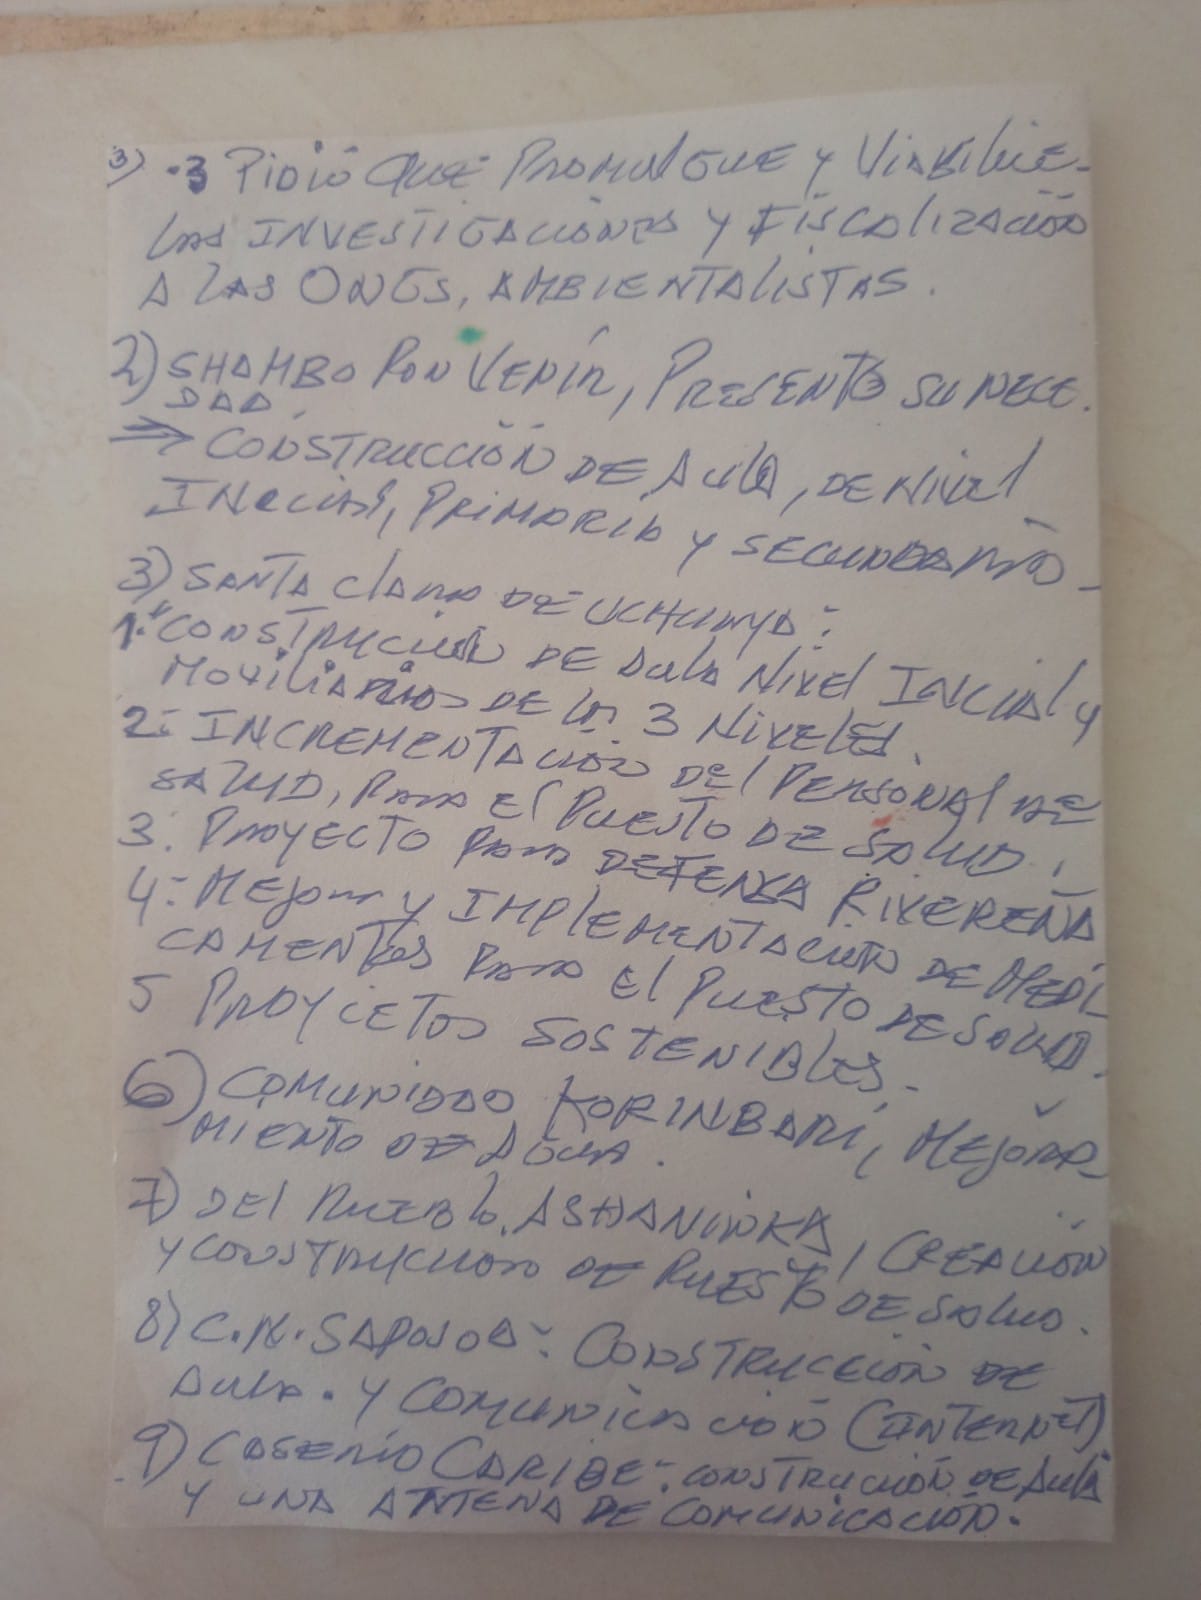 3) -3 PIDIÓ QUE PROMULGUE Y VIABILICE
LAS INVESTIGACIONES Y FISCALIZACIÓN
A LAS ONGS, AMBIENTALISTAS.
2) SHAMBO PORVENIR, PRESENTO SU NECE.
DAD.
⇒ CONSTRUCCIÓN DE AULA, DE NIVEL
INICIAL, PRIMARIA Y SECUNDARIA -
3) SANTA CLARA DE UCHUNYA:
1.- CONSTRUCIÓN DE AULA NIVEL INICIAL Y
MOVILIARIOS DE LOS 3 NIVELES.
2.- INCREMENTACIÓN DEL PERSONAL DE
SALUD, PARA EL PUESTO DE SALUD.
3. PROYECTO PARA DEFENSA RIVEREÑA
4.- MEJORAR Y IMPLEMENTACIÓN DE MEDI
CAMENTOS PARA EL PUESTO DE SALUD.
5 PROYECTOS SOSTENIBLES.
6) COMUNIDAD KORINBARI, MEJORA-
MIENTO DE AGUA.
7) DEL PUEBLO ASHANINKA, CREACIÓN
Y CONSTRUCION DE PUESTO DE SALUD.
8) C.N. SAPOSOA: CONSTRUCCIÓN DE
AULA. Y COMUNICACIÓN (INTERNET)
9) CASERÍO CARIBE: CONSTRUCIÓN DE AULA
Y UNA ANTENA DE COMUNICACIÓN.